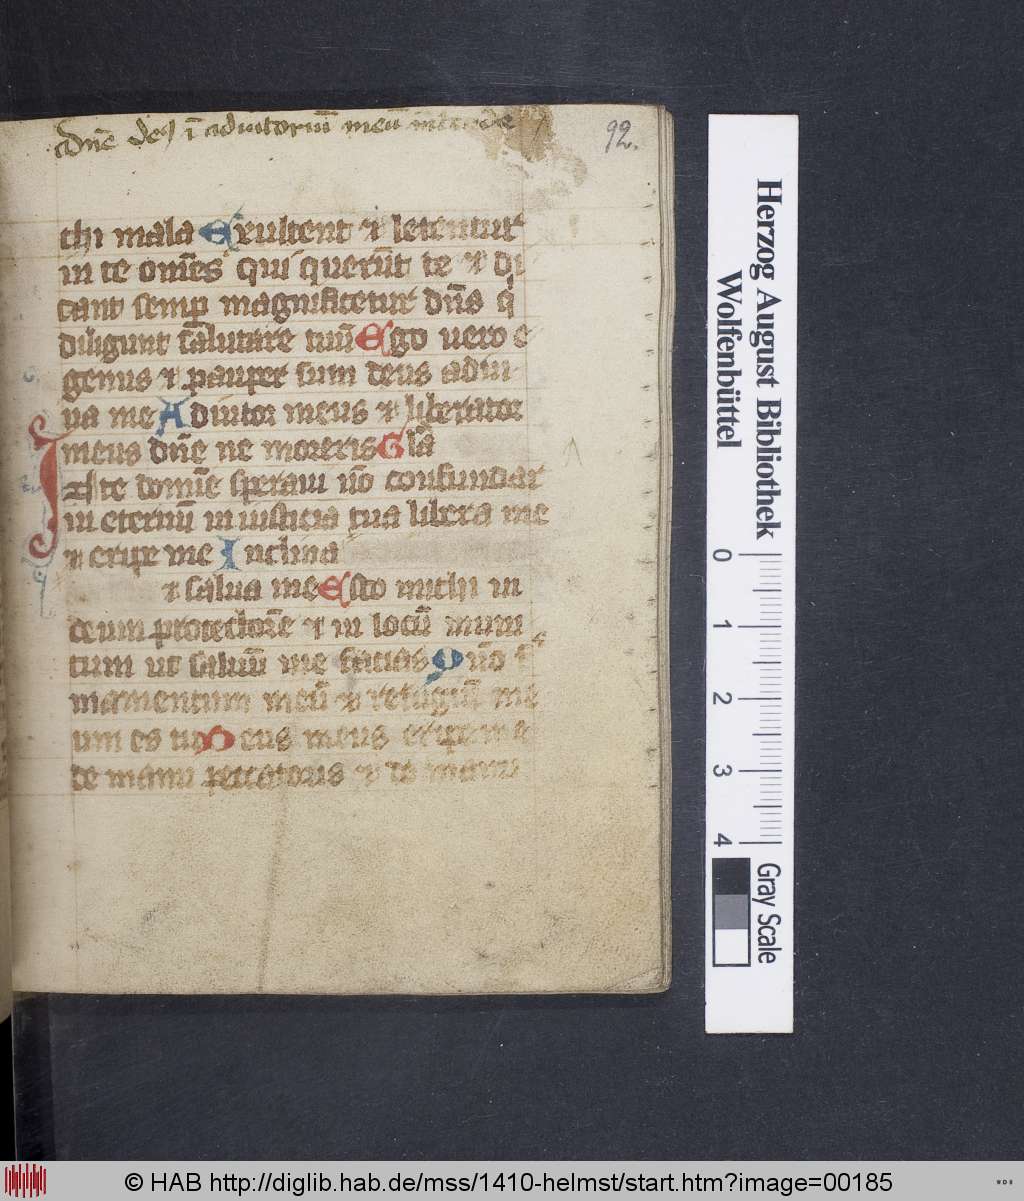 dn̄e deꝯ ī adiutoriū meū intende
92.
thi mala Exultent ⁊ letentur
in te om̄es qui querūt te ⁊ di
cant semꝑ magnificetur dn̄s q̇
diligunt salutare tuū Ego uero e
genus ⁊ pauper sum deus adiu
ua me Adiutor meus ⁊ liberator
meus dn̄e ne moreris Gl̄a
IN te domīe speraui nō confundar
in eternū in iusticia tua libera me
⁊ eripe me Inclina
⁊ salua me Esto michi in
deum protectorē ⁊ in locū muni
tum ut saluū me facias Qm̄o fir
mamentum meū ⁊ refugiū me
um es tu Deus meus eripe me
de manu peccatoris ⁊ de manu
Herzog August Bibliothek
Wolfenbüttel
0 1 2 3 4
Gray Scale
© HAB http://diglib.hab.de/mss/1410-helmst/start.htm?image=00185